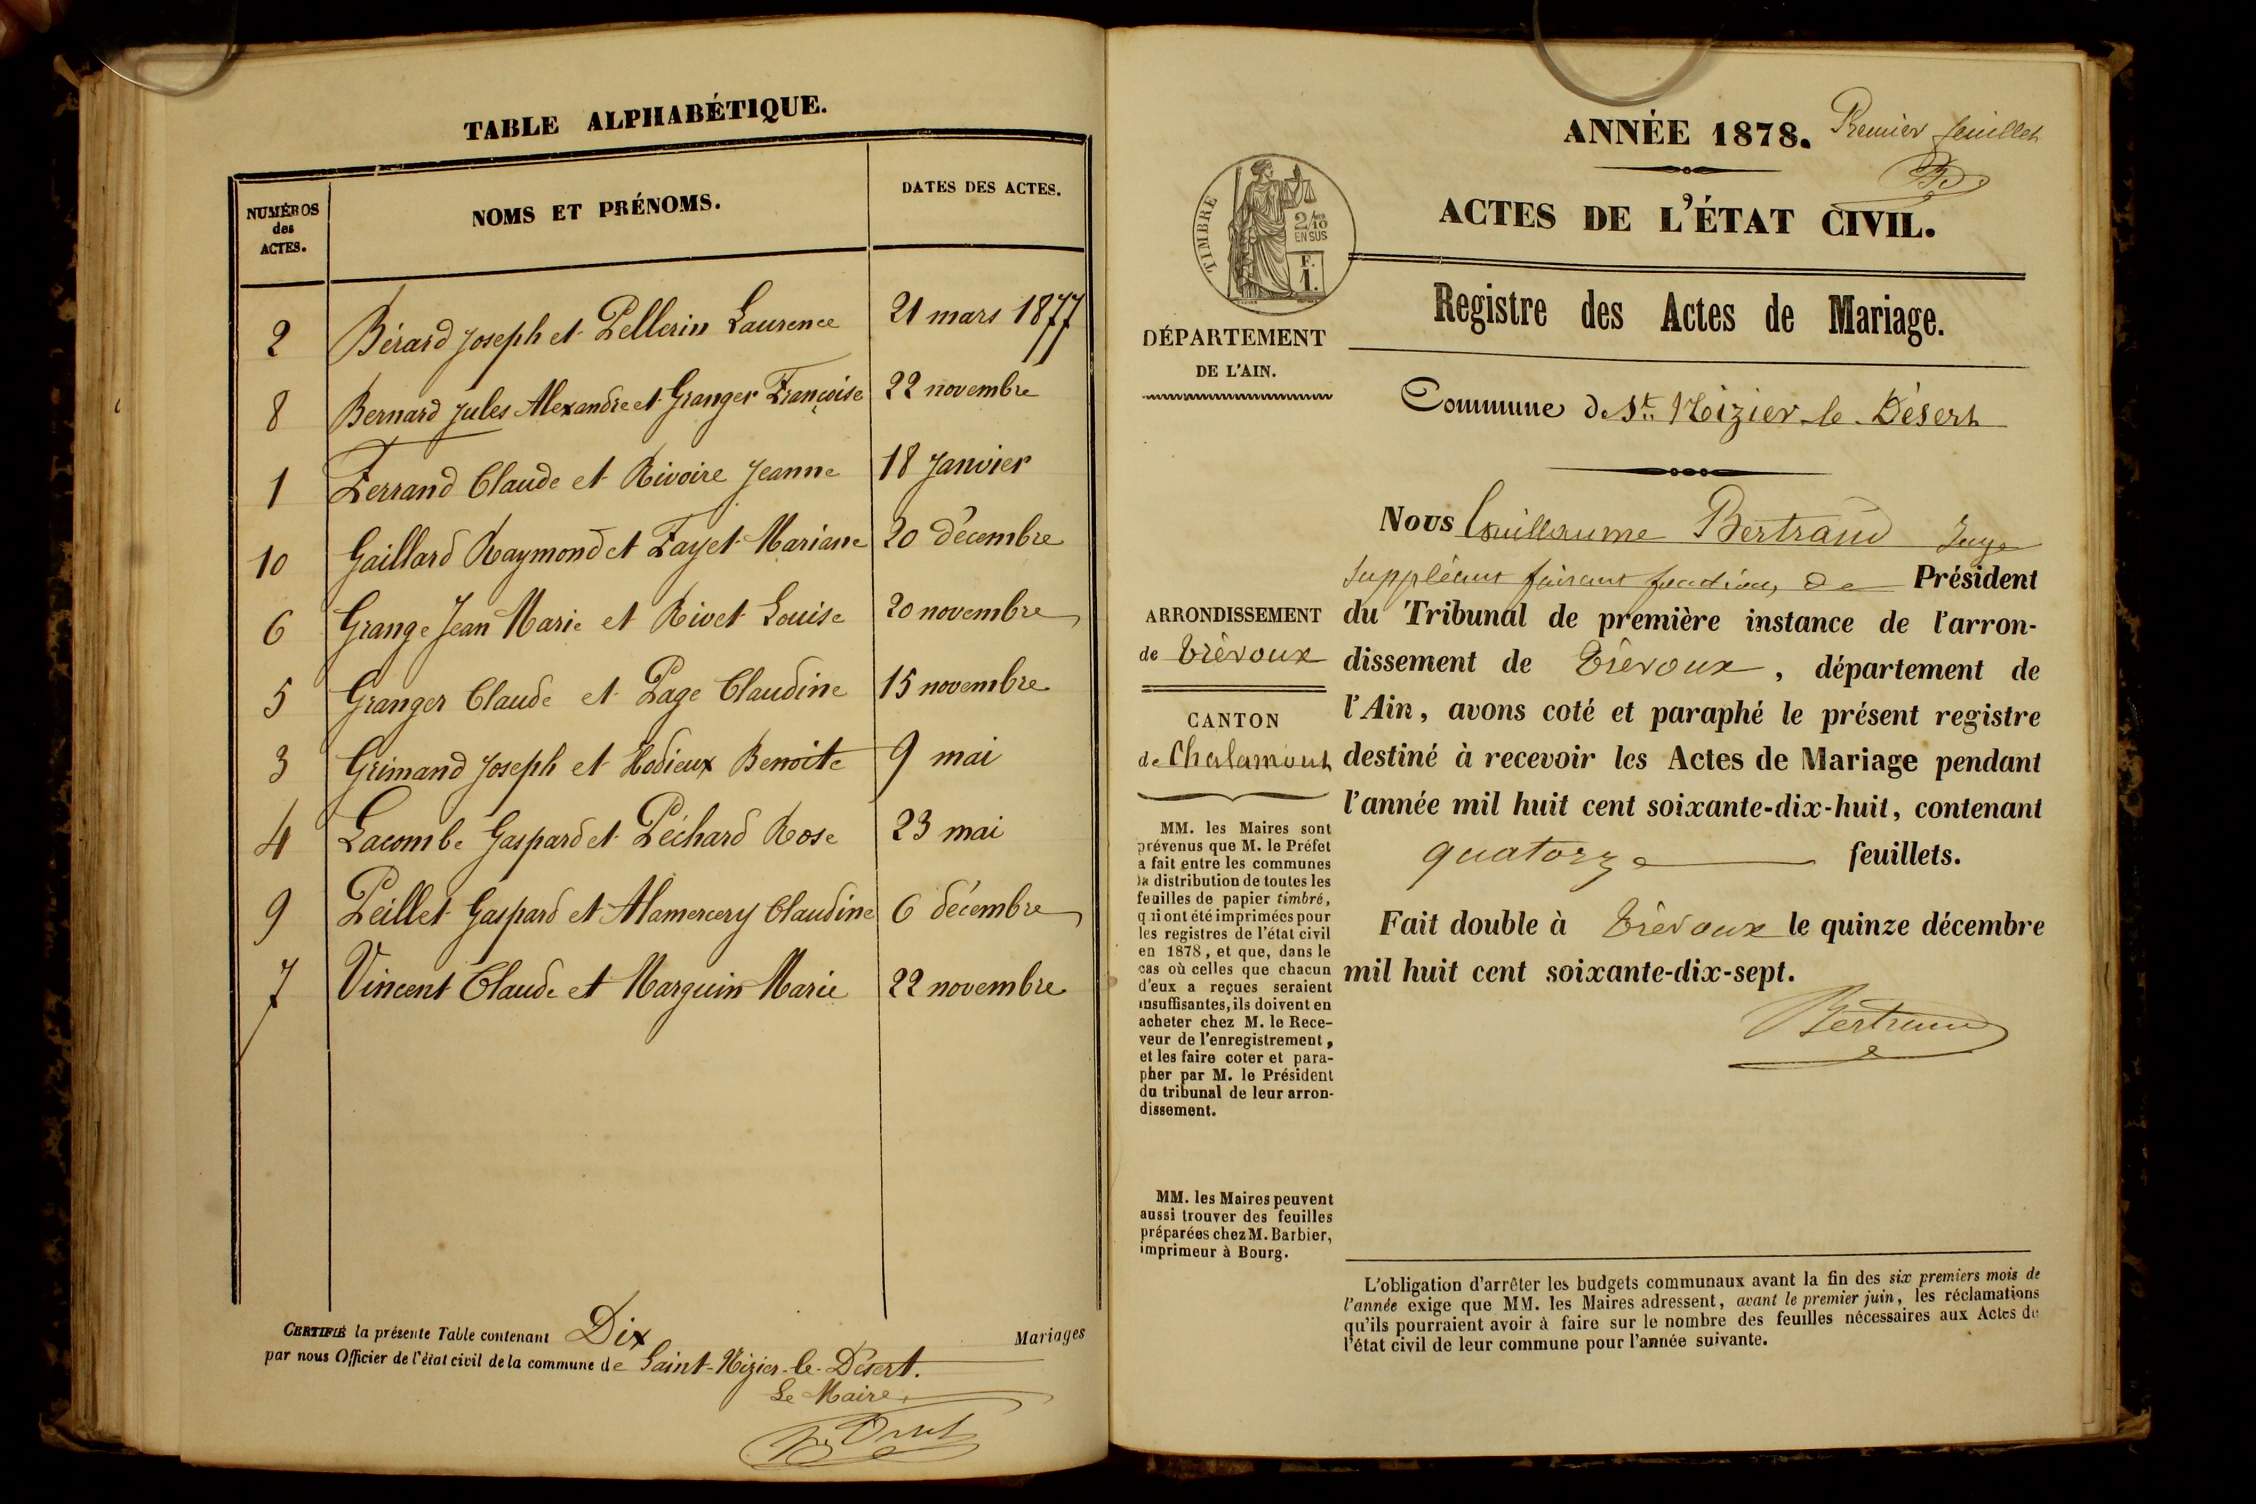 TABLE ALPHABÉTIQUE.
NUMÉROS des ACTES.
NOMS ET PRÉNOMS.
DATES DES ACTES.
2 Bérard Joseph et Pellerin Laurence 21 mars 1877
8 Bernard Jules Alexandre et Granger Françoise 22 novembre
1 Ferrand Claude et Rivoire Jeanne 18 Janvier
10 Gaillard Raymond et Fayet Mariane 20 décembre
6 Grange Jean Marie et Rivet Louise 20 novembre
5 Granger Claude et Page Claudine 15 novembre
3 Grimand Joseph et Hodieux Benoite 9 mai
4 Lacombe Gaspard et Péchard Rose 23 mai
9 Peillet Gaspard et Alamercery Claudine 6 décembre
7 Vincent Claude et Marguin Marie 22 novembre
CERTIFIÉ la présente Table contenant Dix Mariages
par nous Officier de l'état civil de la commune de Saint-Nizier-le-Désert.
Le Maire,
ANNÉE 1878.
Premier feuillet
ACTES DE L'ÉTAT CIVIL.
TIMBRE
2/10
EN SUS
F.
1.
Registre des Actes de Mariage.
DÉPARTEMENT
DE L'AIN.
Commune de St. Nizier-le-Désert
ARRONDISSEMENT
de Trévoux
CANTON
de Chalamont
MM. les Maires sont
prévenus que M. le Préfet
a fait entre les communes
la distribution de toutes les
feuilles de papier timbré,
qui ont été imprimées pour
les registres de l'état civil
en 1878, et que, dans le
cas où celles que chacun
d'eux a reçues seraient
insuffisantes, ils doivent en
acheter chez M. le Rece-
veur de l'enregistrement,
et les faire coter et para-
pher par M. le Président
du tribunal de leur arron-
dissement.
MM. les Maires peuvent
aussi trouver des feuilles
préparées chez M. Barbier,
imprimeur à Bourg.
Nous Guillaume Bertrand Juge
suppléant faisant fonctions de Président
du Tribunal de première instance de l'arron-
dissement de Trévoux, département de
l'Ain, avons coté et paraphé le présent registre
destiné à recevoir les Actes de Mariage pendant
l'année mil huit cent soixante-dix-huit, contenant
quatorze feuillets.
Fait double à Trévoux le quinze décembre
mil huit cent soixante-dix-sept.
Bertrand
L'obligation d'arrêter les budgets communaux avant la fin des six premiers mois de
l'année exige que MM. les Maires adressent, avant le premier juin, les réclamations
qu'ils pourraient avoir à faire sur le nombre des feuilles nécessaires aux Actes de
l'état civil de leur commune pour l'année suivante.